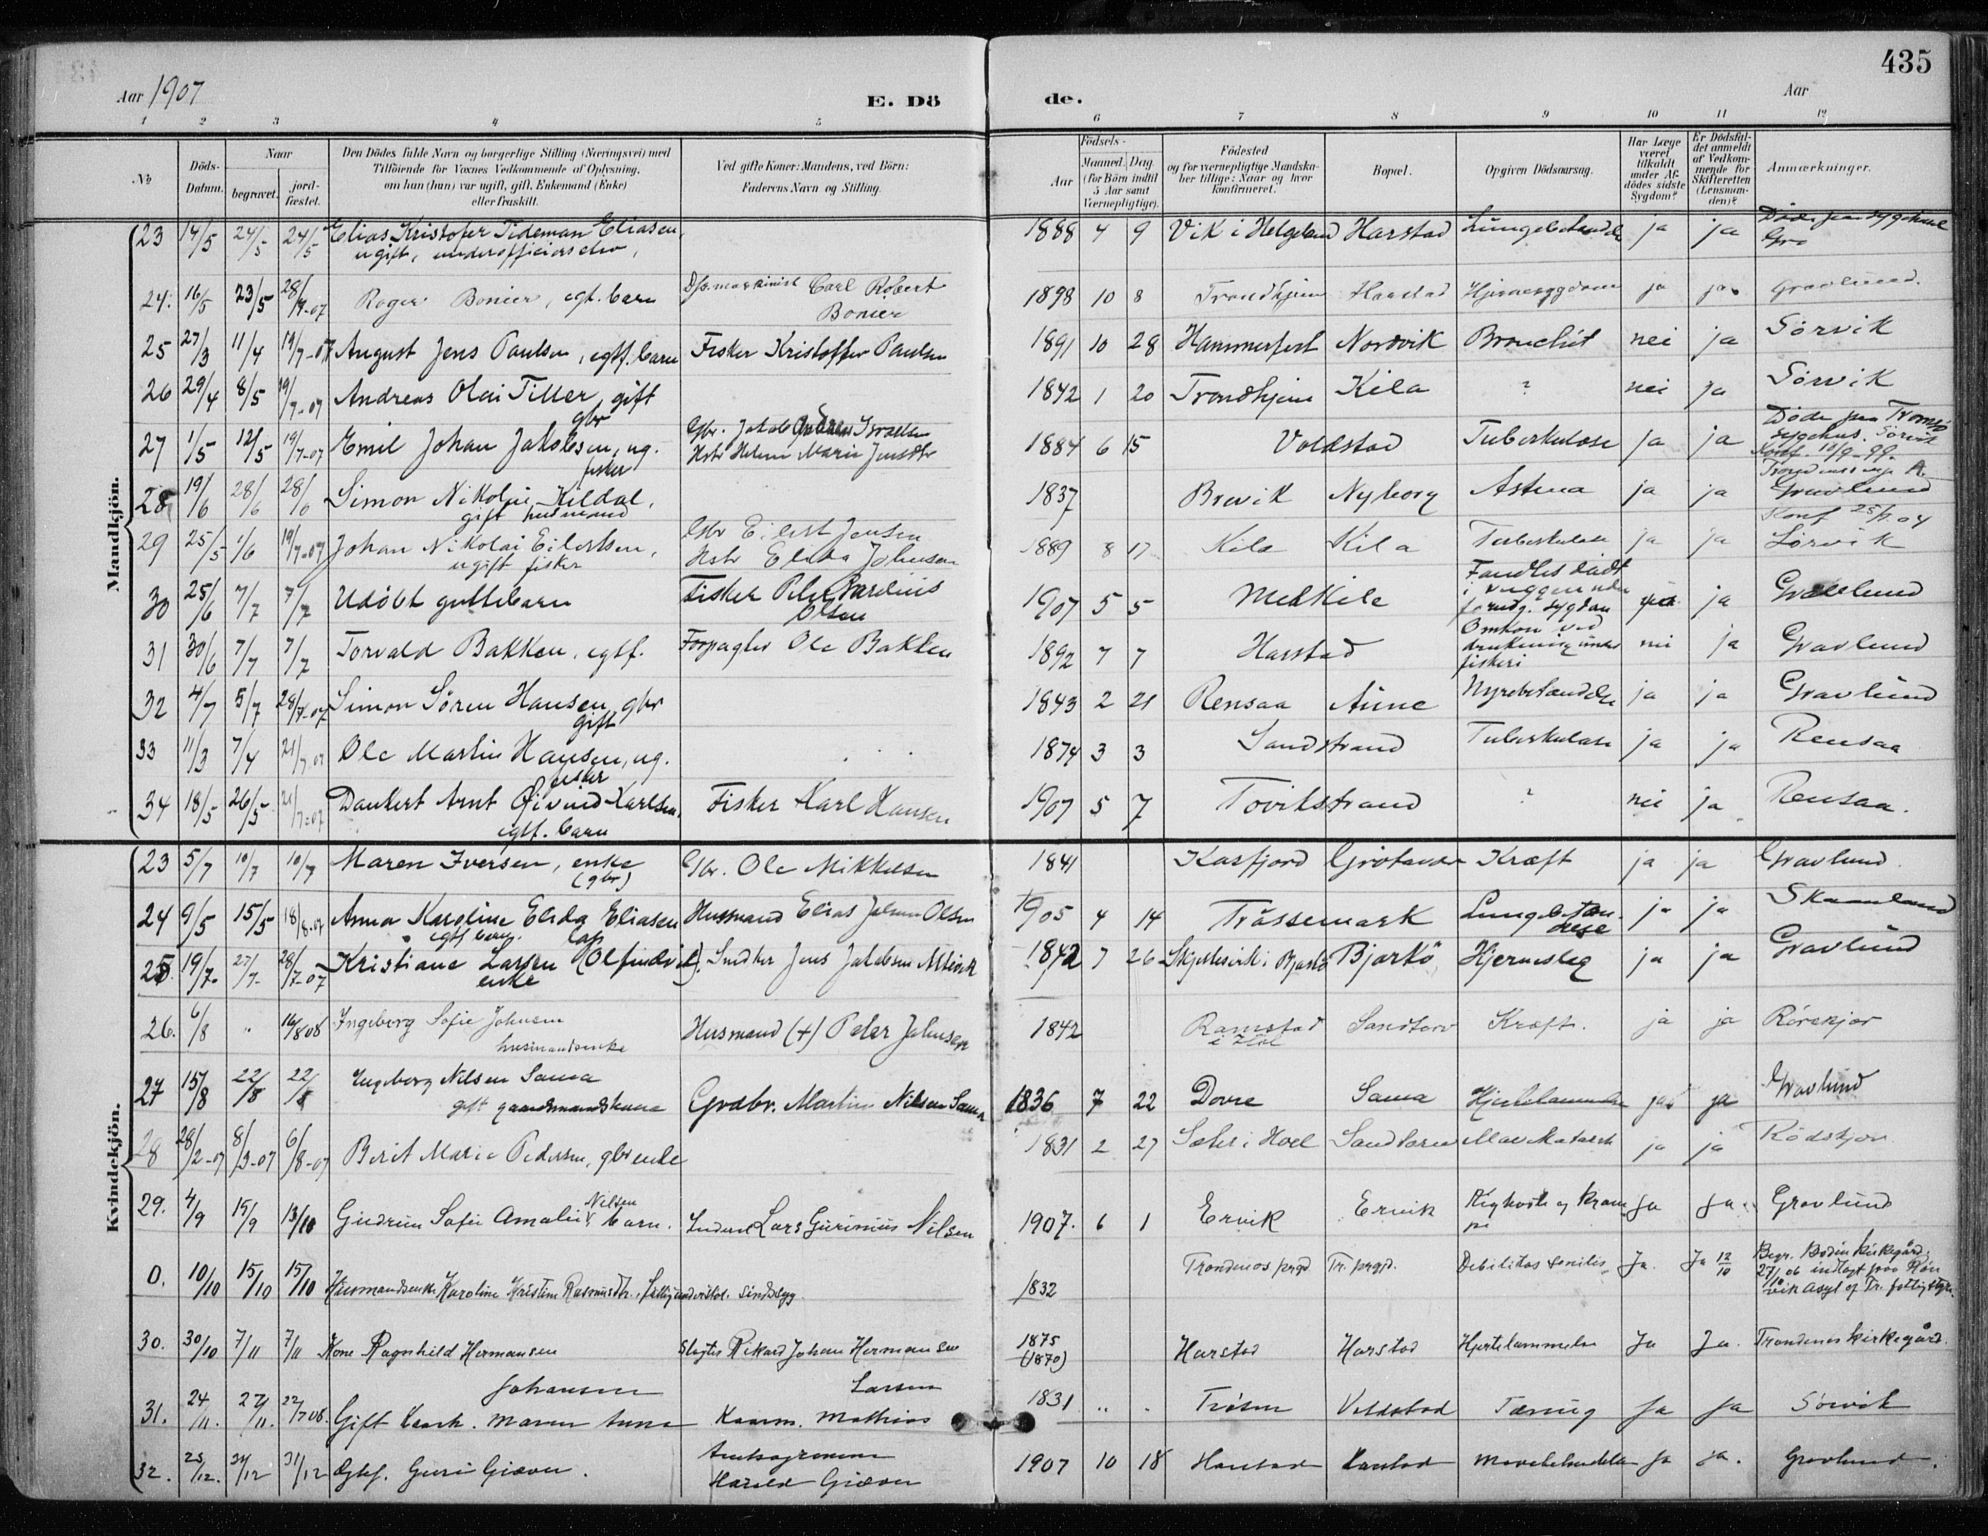 435
Aar 1907
E. Dö
de.
Aar
1 2 3 4 5 6 7 8 9 10 11 12
No
Döds-Datum.
Naar
begravet.
jord-fæstet.
Den Dödes fulde Navn og borgerlige Stilling (Næringsvei) med
Tilföiende for Voxnes Vedkommende af Oplysning,
om han (hun) var ugift, gift, Enkemand (Enke)
eller fraskilt.
Ved gifte Koner: Mandens, ved Börn:
Faderens Navn og Stilling.
Födsels-
Aar
Maaned. Dag
(for Börn indtil 5 Aar samt Værnepligtige).
Födested
og for værnepligtige Mandska-
ber tillige: Naar og hvor
konfirmeret.
Bopæl.
Opgiven Dödsaarsag.
Har Læge været tilkaldt under Af-dödes sidste Sygdom?
Er Dödsfal-det anmeldt af Vedkom-mende for Skifteretten (Lensman-den)?
Anmærkninger.
Mandkjön.
23 14/5 24/5 24/5 Elias Kristofer Tideman Eliasen, 1888 4 9 Vik i Helgeland Harstad Lungebetændelse ja ja
ugift, underofficierselev,
24. 16/5 23/5 28/7-07 Roger Bonier, egt. barn Carl Robert Bonier 1898 10 8 Trondhjem Harstad Hjernesygdom ja ja. Gravlund.
25 27/3 11/4 19/7-07 August Jens Paulsen, egtf. barn Fisker Kristoffer Paulsen 1891 10 28 Hammerfest Nordvik Bronchit nei ja Sørvik
26 29/4 8/5 19/7-07 Andreas Olai Tiller, gift gbr 1842 1 20 Trondhjem Kila ? nei ja Sørvik
27 1/5 12/5 19/7-07 Emil Johan Jakobsen, ug. fisker Gbr. Jakob Andreas Israelsen 1884 6 15 Voldstad Tuberkulose ja ja Døde paa Tromsø sygehus. Sørvik
28 19/6 28/6 28/6 Simon Nikolai Kildal, 1837 Brevik Nyborg Astma ja ja Gravlund
gift husmand
29 25/5 1/6 19/7-07 Johan Nikolai Eilertsen, Gbr Eilert Jensen 1889 8 17 Kila Kila Tuberkulose ja ja Sørvik
ugift fisker
30 25/6 7/7 7/7 Udøbt guttebarn Fisker Peder Olsen 1907 5 5 Medkile Fandtes dødt i vuggen uden forudg. sygdom ja Gravlund
31 30/6 7/7 7/7 Torvald Bakken, egtf. Forpagter Ole Bakken 1892 7 7 Harstad Omkom ved drukning under fiskeri nei ja Gravlund
32 4/7 5/7 28/7-07 Simon Søren Hansen, gbr gift 1843 2 21 Rensaa Aune Nyrebetændelse ja ja Gravlund
33 11/3 7/4 21/7-07 Ole Martin Hansen, ug. fisker 1874 3 3 Sandstrand Tuberkulose ja ja Rensaa
34 18/5 26/5 21/7-07 Dankert Arnt Øivind Karlsen, Fisker Karl Hansen 1907 5 7 Tovikstrand ? nei ja Rensaa.
egtf. barn
Kvindekjön.
23 5/7 10/7 10/7 Maren Iversen, enke (gbr) Gbr. Ole Mikkelsen 1841 Kasfjord Kræft ja ja Gravlund
24 9/5 15/5 18/8-07 Anna Karoline Elida Eliasen Husmand Elias Johan Olsen 1905 4 14 Trøssemark Lungebetændelse ja ja Skaanland
egtf barn.
25. 19/7. 27/7- 28/7-07 Kristiane Larsen enke Jens Jakobsen 1842 7 26 Bjarkö Hjerneslag ja ja Gravlund
26. 6/8 " 16/8 08 Ingeborg Sofie Johnsen Husmand (+) Peter Johnsen 1842 Ramstad Sandtorv Kræft. ja ja Rörskjær
husmandsenke
27 15/8 22/8 22/8 Ingeborg Nilsen Sama Grdbr. Martin Nilsen Sama 1836 7 22 Dovre Sama Hjertelammelse ja ja Gravlund
gift gaardmandskone
28 28/2-07 8/3-07 6/8-07 Berit Marie Pedersen, gbrenke 1831 2 27 Sandtorv ja ja
29. 4/9 15/9 13/10 Gudrun Sofie Amalie Nilsen barn. Lars Nilsen 1907. 6 1 Ervik Ervik Kighoste og krampe Ja Ja. Gravlund
0. 10/10 15/10 15/10 Husmandsenke Karoline Kristine Rasmusdtr., sindssyg. 1832 Trondenes prgd Tr. prgd. Debilitas senilis Ja. Ja 12/10 Begr. Bodin kirkegård. 27/10 06 indlagt paa Rønvik asyl af Tr. fattigstyre.
30. 30/10 7/11 7/11 Kone Ragnhild Hermansen Slagter Rikard Johan Hermansen 1875 (1870) Harstad Harstad Hjertelammelse Ja Ja. Trondenes kirkegård.
31. 24/11. 27/11. 22/7 08. Gift Maren Anna Johansen Mathias Larsen 1831 " . Voldstad Tæring Ja Ja Sørvik
32. 23/12. 31/12 Egtef. Guri Giæver. Harald Giæver 1907 10 18 Harstad Harstad Ja ja. Gravlund.